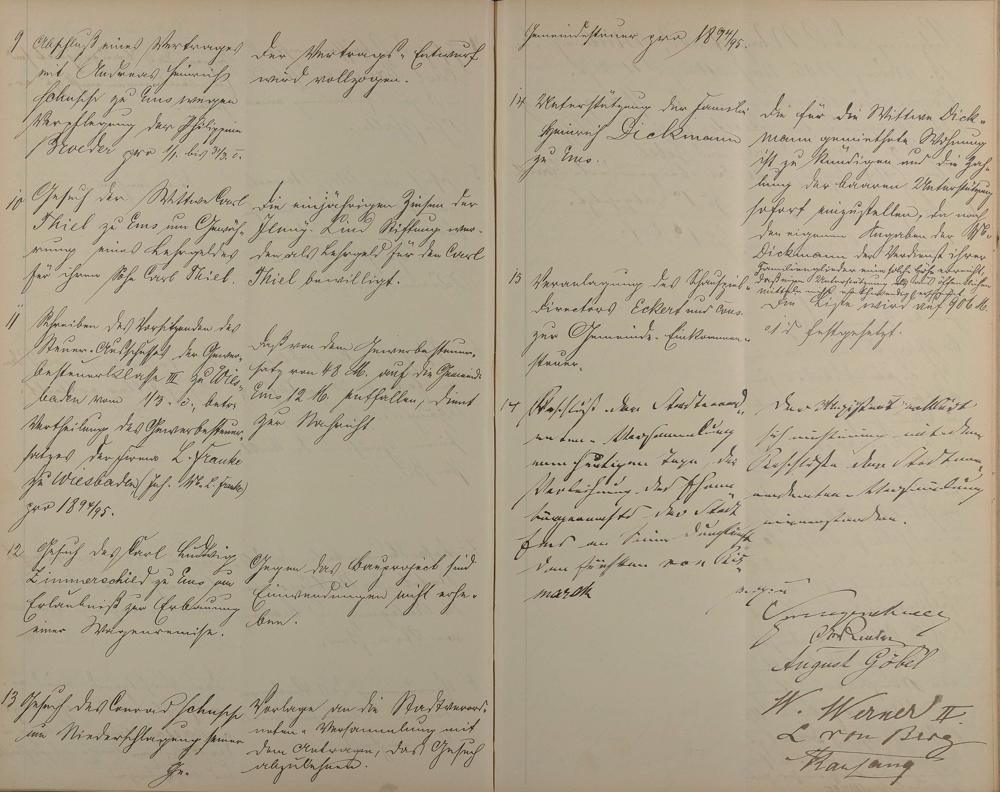 9 Abschluß eines Vertrages
mit Andreas Heinrich
Schupp zu Ems wegen
Verpflegung der Philippine
Broeder pro 1/1. bis 31/3. c.
Der Vertrags-Entwurf
wird vollzogen.
10 Gesuch der Wittwe Carl
Thiel zu Ems um Gewäh-
rung eines Lehrgeldes
für ihren Sohn Carl Thiel.
Die einjährigen Zinsen der
Jenny-Lind Stiftung wer-
den als Lehrgeld für den Carl
Thiel bewilligt.
11 Schreiben des Vorsitzenden des
Steuer-Ausschusses der Gewer-
besteuerklasse III zu Wies-
baden vom 1/3. c., betr.
Vertheilung des Gewerbesteuer-
satzes der Firma L. Franke
zu Wiesbaden (Inh. L. Franke)
pro 1894/95.
Daß von dem Gewerbesteuer-
satz von 48 M. auf die Gemeinde
Ems 12 M. entfallen, dient
zur Nachricht
12 Gesuch des Karl Ludwig
Zimmerschied zu Ems um
Erlaubniß zur Erbauung
einer Wagenremise.
Gegen das Bauproject sind
Einwendungen nicht erho-
ben.
13 Gesuch des Conrad
um Niederschlagung seiner
Ge-
Vorlage an die Stadtverord-
neten-Versammlung mit
dem Antrage, das Gesuch
abzulehnen.
Gemeindesteuer pro 1894/95.
14 Unterstützung der Familie
Heinrich Dickmann
zu Ems.
Die für die Wittwe Dick-
mann gemiethete Wohnung
ist zu kündigen und die Zah-
lung der baaren Unterstützung
sofort einzustellen, da nach
den eigenen Angaben der
Dickmann der Verdienst ihrer
Familienglieder eine solche Höhe erreicht,
daß eine Unterstützung aus öffentlichen
Mitteln nicht
15 Veranlagung des Schauspiel-
directors Eckert und Cons.
zur Gemeinde-Einkommen-
steuer.
Die Liste wird auf 906 M.
festgesetzt.
Beschluß der Stadtverord-
neten-Versammlung
vom heutigen Tage, die
Verleihung des Ehren-
bürgerrechts der Stadt
Ems an Seine Durchlaucht
den Fürsten von Bis-
marck
Der Magistrat erklärt
sich mit dem
Beschlusse der Stadtver-
ordneten-Versammlung
einverstanden.
August Göbel
W. Werner II.
L von Berg